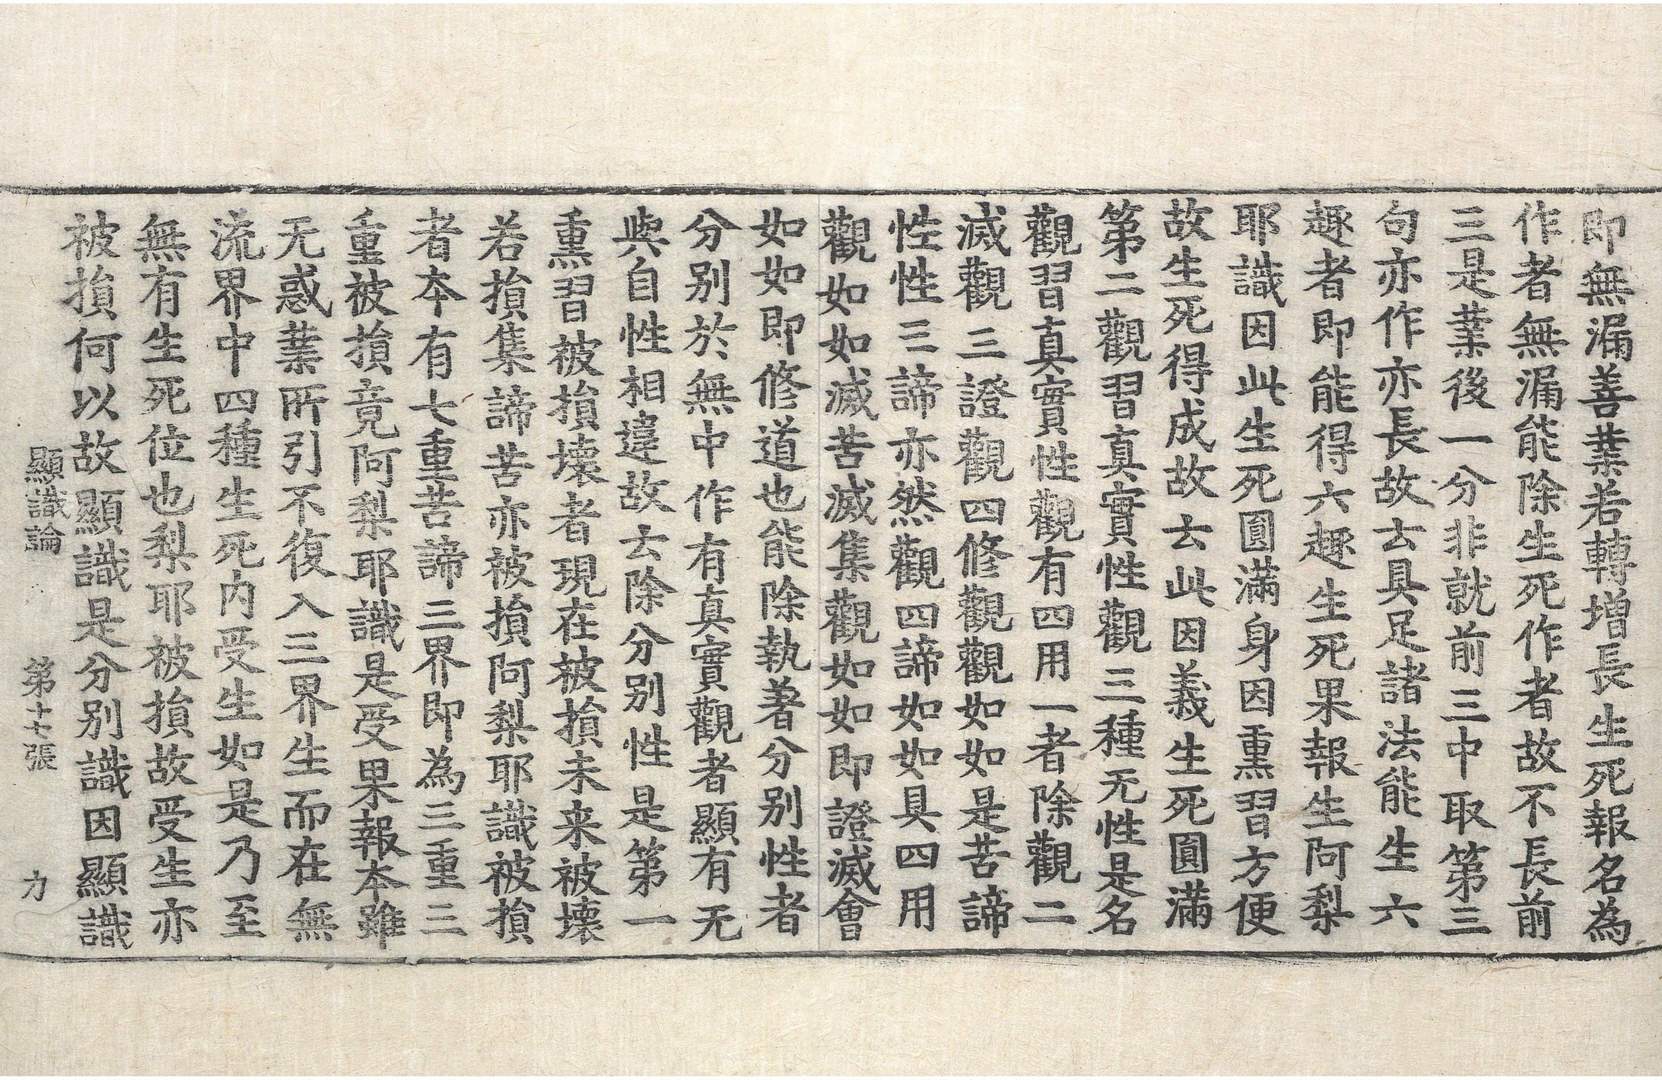 即無漏善業若轉增長生死報名為
作者無漏能除生死作者故不長前
三是業後一分非就前三中取第三
句亦作亦長故去具足諸法能生六
趣者即能得六趣生死果報生阿梨
耶識因此生死圓滿身因熏習方便
故生死得成故去此因義生死圓滿
第二觀習真實性觀三種无性是名
觀習真實性觀有四用一者除觀二
滅觀三證觀四修觀觀如如是苦諦
性性三諦亦然觀四諦如如具四用
觀如如滅苦滅集觀如如即證滅會
如如即修道也能除執著分別性者
分別於無中作有真實觀者顯有无
與自性相違故去除分別性是第一
熏習被損壞者現在被損未来被壞
若損集諦苦亦被損阿梨耶識被損
者本有七重苦諦三界即為三重三
重被損竟阿梨耶識是受果報本雖
无惑業所引不復入三界生而在無
流界中四種生死內受生如是乃至
無有生死位也梨耶被損故受生亦
被損何以故顯識是分別識因顯識
顯識論 第十七張 力